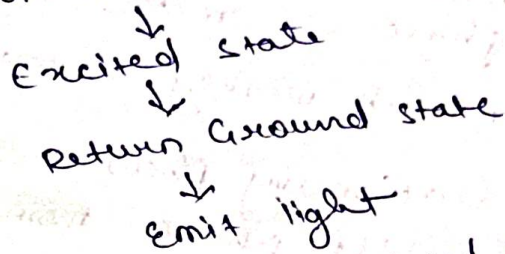 ↓
Excited state
↓
Return Ground state
↓
Emit light